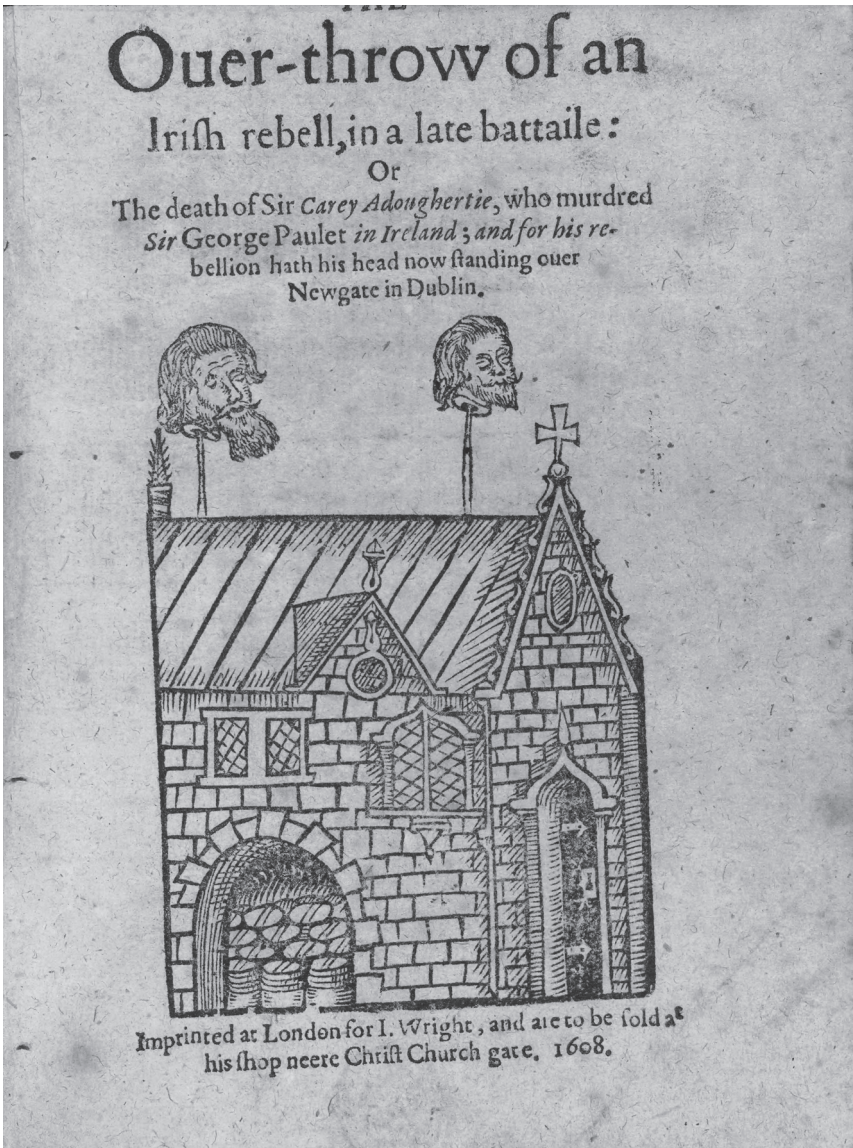 THE
Ouer-throvv of an
Iriſh rebell, in a late battaile:
Or
The death of Sir Carey Adoughertie, who murdred
Sir George Paulet in Ireland ; and for his re-
bellion hath his head now ſtanding ouer
Newgate in Dublin.
Imprinted at London for I. Wright, and are to be ſold at
his ſhop neere Chriſt Church gate. 1608.